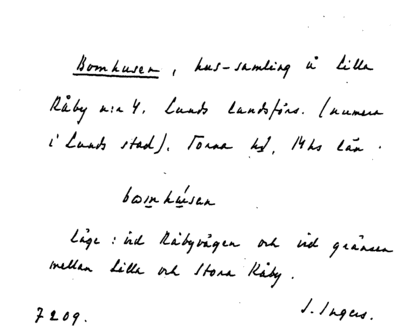 Bomhusen, hus-samling å Lilla
Råby n:r 4. Lunds landsförs. (numera
i Lunds stad). Torna hd, Mhs län.
bωmhúsan
Läge: vid Råbyvägen och vid gränsen
mellan Lilla och Stora Råby.
I. Ingers.
7209.